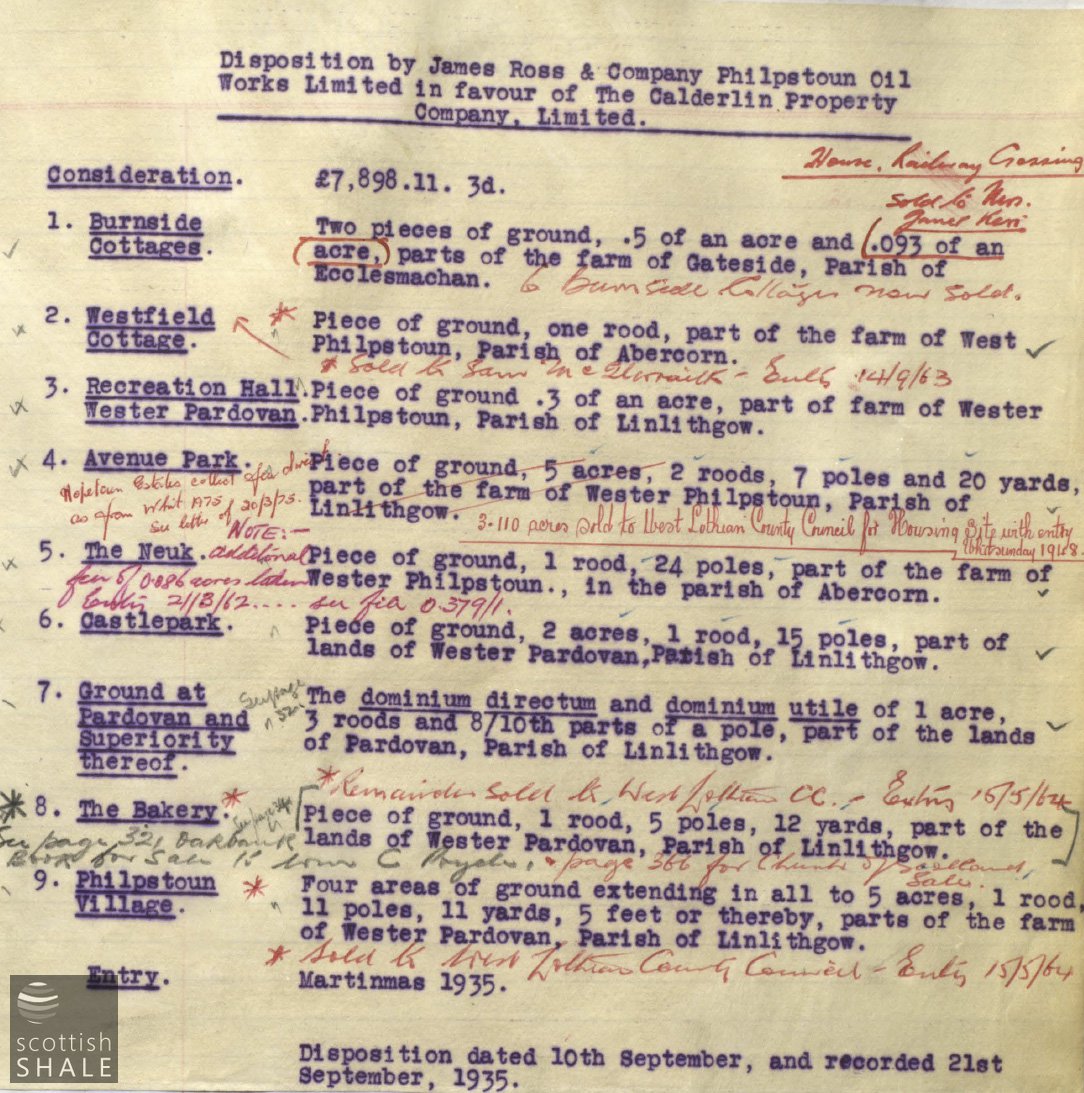 Disposition by James Ross & Company Philpstoun Oil
Works Limited in favour of The Calderlin Property
Company, Limited.
House, Railway Crossing
sold to Mrs.
Janet Kerr
Consideration. £7,898.11. 3d.
1. Burnside Cottages.
Two pieces of ground, .5 of an acre and (.093 of an
acre,) parts of the farm of Gateside, Parish of
Ecclesmachan. 6 Burnside Cottages now sold.
2. Westfield Cottage.
* Piece of ground, one rood, part of the farm of West
Philpstoun, Parish of Abercorn.
* Sold to Sam - Entry 14/9/63
3. Recreation Hall Wester Pardovan.
Piece of ground .3 of an acre, part of farm of Wester
Philpstoun, Parish of Linlithgow.
4. Avenue Park.
Hopetoun Estates collect direct
as from Whit 1975
See letter of 20/3/75.
Piece of ground, 5 acres, 2 roods, 7 poles and 20 yards,
part of the farm of Wester Philpstoun, Parish of
Linlithgow.
3.110 acres sold to West Lothian County Council for Housing Site with entry
Whitsunday 1948
5. The Neuk.
NOTE:-
additional
feu of 0.086 acres taken
Entry 21/3/62.... see file 0.379/1.
Piece of ground, 1 rood, 24 poles, part of the farm of
Wester Philpstoun., in the parish of Abercorn.
6. Castlepark.
Piece of ground, 2 acres, 1 rood, 15 poles, part of
lands of Wester Pardovan,Parish of Linlithgow.
7. Ground at Pardovan and Superiority thereof.
See page 321
The dominium directum and dominium utile of 1 acre,
3 roods and 8/10th parts of a pole, part of the lands
of Pardovan, Parish of Linlithgow.
* Remainder sold to West Lothian CC. - Entry 15/5/64
* 8. The Bakery. *
Piece of ground, 1 rood, 5 poles, 12 yards, part of the
lands of Wester Pardovan, Parish of Linlithgow.
See page 321 Oakbank
Book for Sale to
page 366 for Church of Scotland
Sale.
9. Philpstoun Village.
* Four areas of ground extending in all to 5 acres, 1 rood,
11 poles, 11 yards, 5 feet or thereby, parts of the farm
of Wester Pardovan, Parish of Linlithgow.
* Sold to West Lothian County Council - Entry 15/5/64
Entry. Martinmas 1935.
Disposition dated 10th September, and recorded 21st
September, 1935.
scottish
SHALE